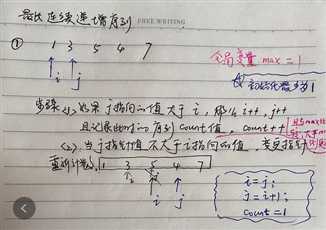 最长连续递增序列
FREE WRITING
① 1 3 5 4 7
i j
全局变量 max = 1
初始化都为1
步骤 <1> 如果 j指向的值 大于 i, 那么 i++, j++
且记录此时的序列 count值, count++
<2>, 当 j指针值 不大于 i指向的值,
重新计数, 1 3 5 4 7
i j i j
i = j;
j = i+1;
count = 1